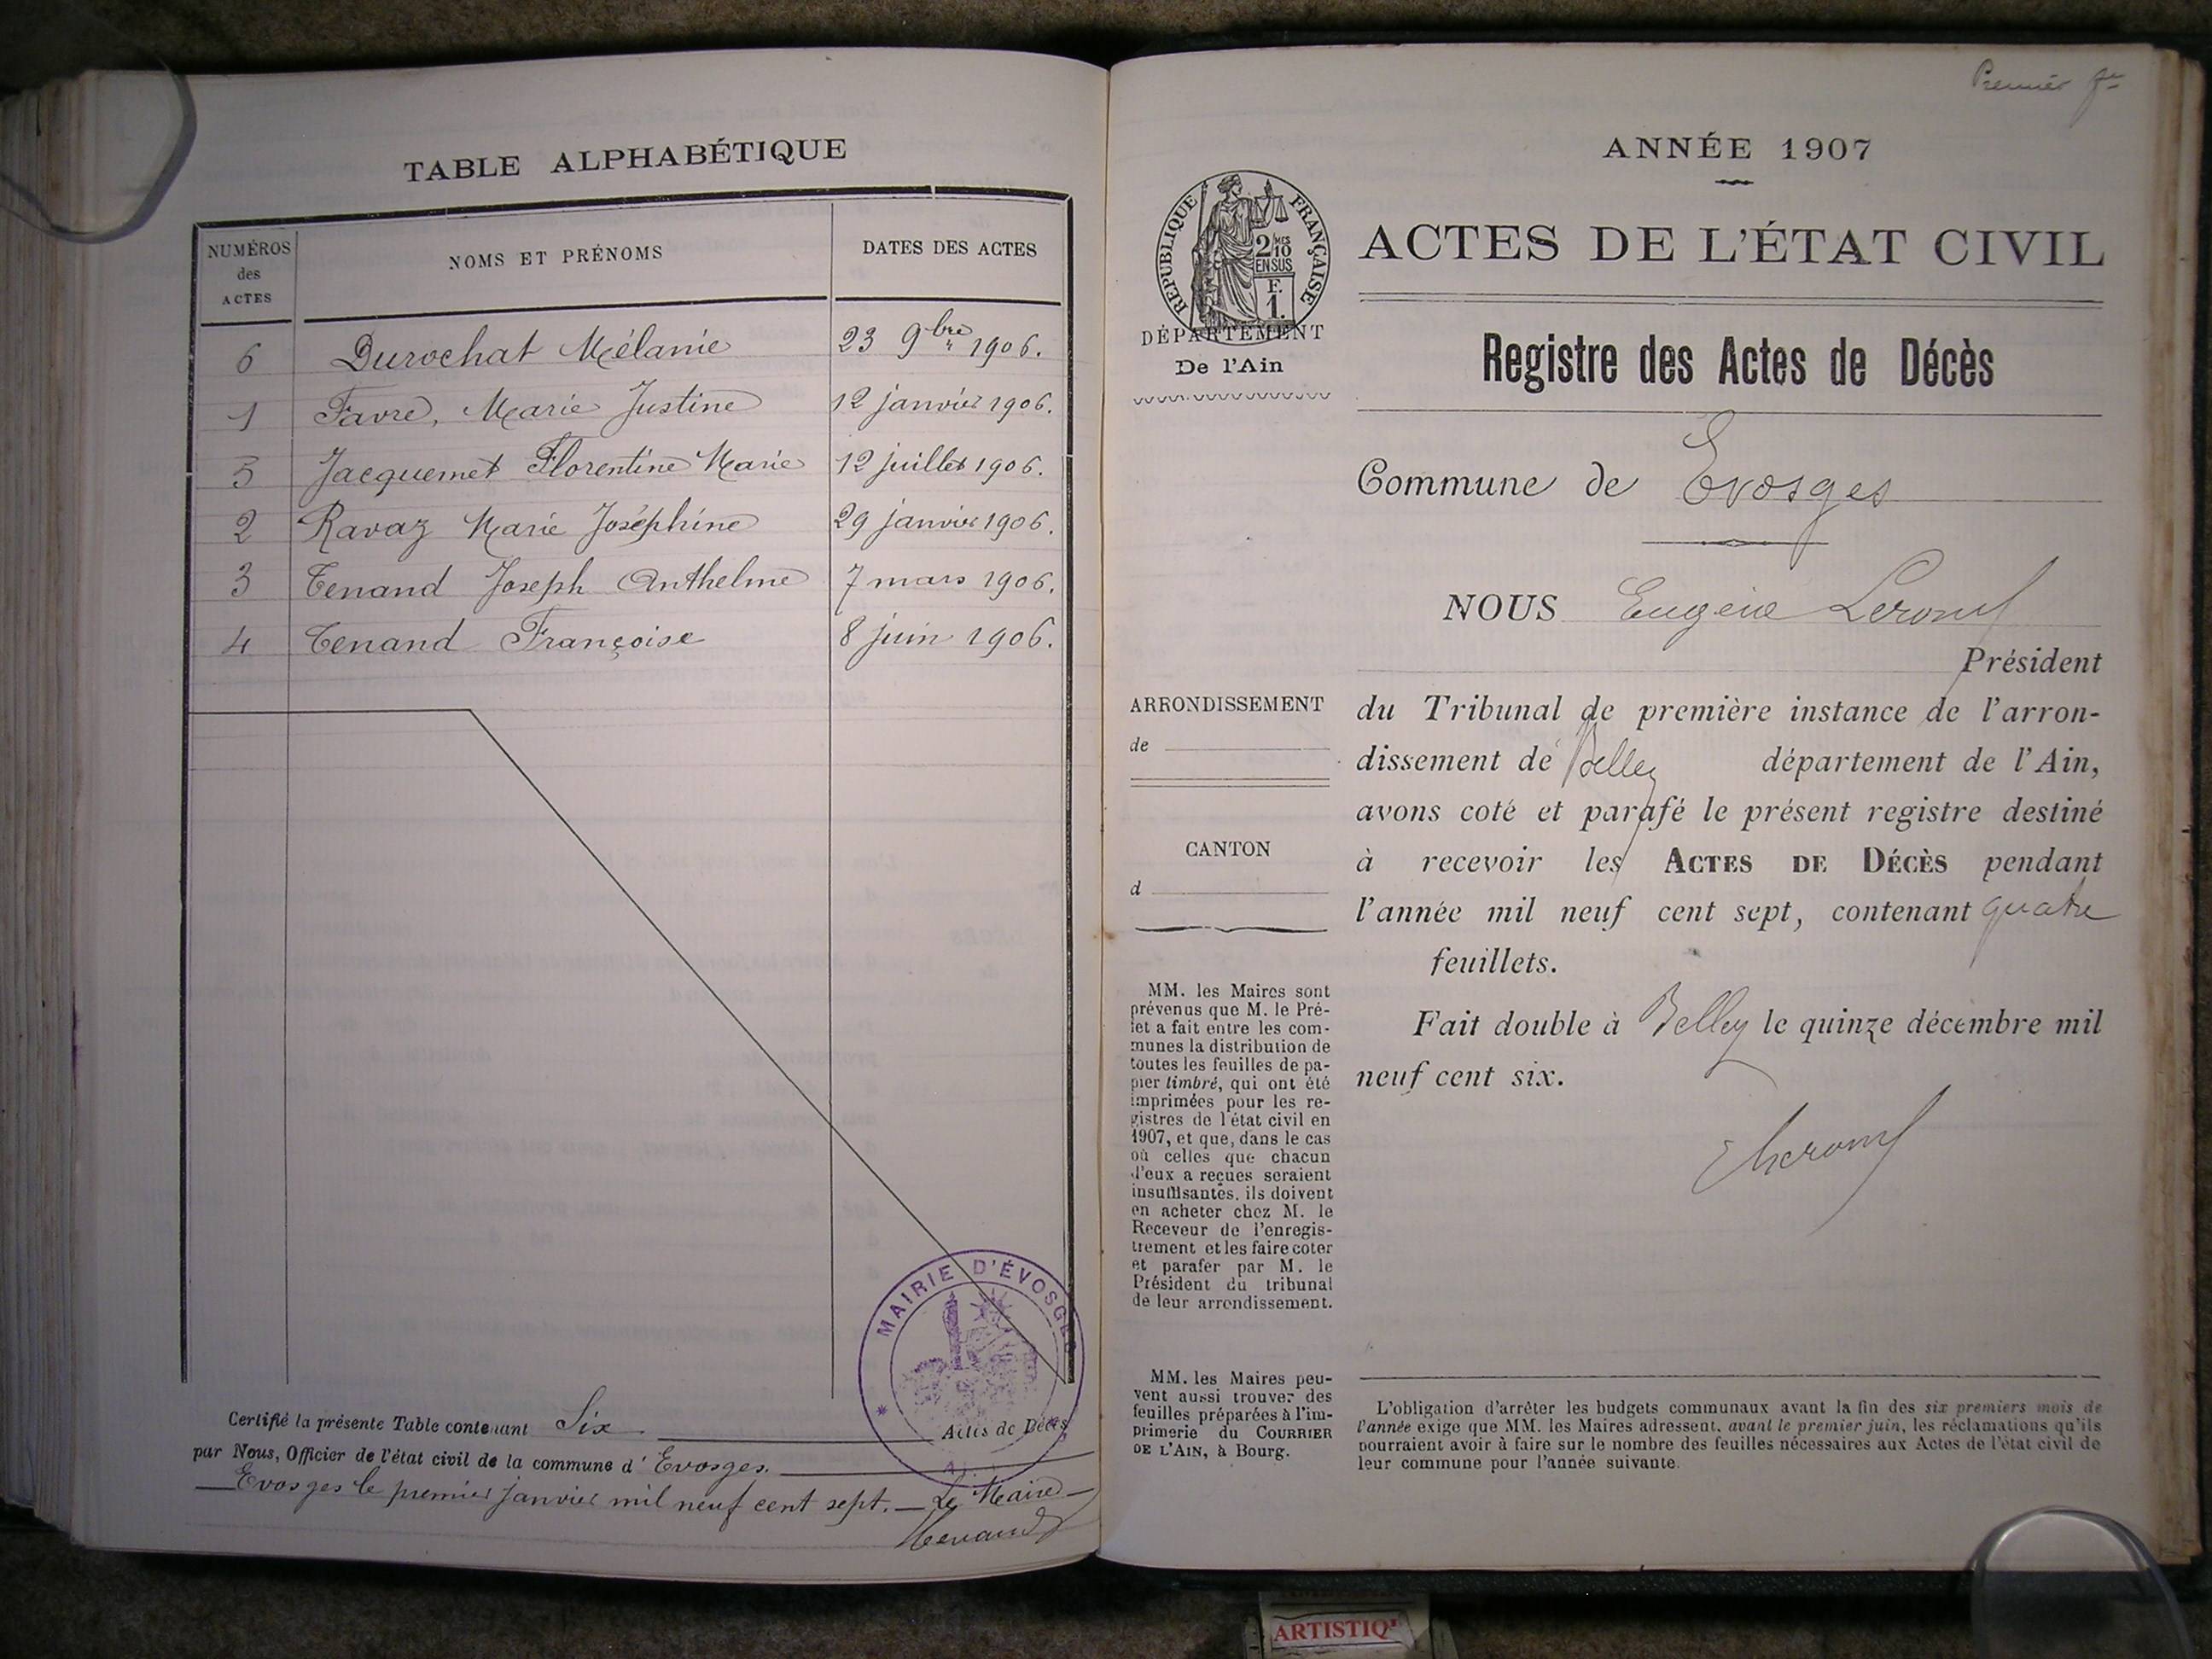 TABLE ALPHABÉTIQUE
NUMÉROS
des
ACTES
NOMS ET PRÉNOMS
DATES DES ACTES
6 Durochat Mélanie 23 9bre 1906.
1 Favre, Marie Justine 12 janvier 1906.
5 Jacquemet Florentine Marie 12 juillet 1906.
2 Ravaz Marie Joséphine 29 janvier 1906.
3 Tenand Joseph Anthelme 7 mars 1906.
4 Tenand Françoise 8 juin 1906.
MAIRIE D'ÉVOSGES
Certifié la présente Table contenant Six Actes de Décès
par Nous, Officier de l'état civil de la commune d' Evosges.
Evosges le premier janvier mil neuf cent sept. — Le Maire —
Tenand
Premier
ANNÉE 1907
RÉPUBLIQUE FRANÇAISE
2 MES
10
EN SUS
F.
1.
DÉPARTEMENT
De l'Ain
ACTES DE L'ÉTAT CIVIL
Registre des Actes de Décès
Commune de Evosges
NOUS Eugène
Président
du Tribunal de première instance de l'arron-
dissement de Belley département de l'Ain,
avons coté et parafé le présent registre destiné
à recevoir les ACTES DE DÉCÈS pendant
l'année mil neuf cent sept, contenant quatre
feuillets.
Fait double à Belley le quinze décembre mil
neuf cent six.
ARRONDISSEMENT
de
CANTON
d
MM. les Maires sont
prévenus que M. le Pré-
fet a fait entre les com-
munes la distribution de
toutes les feuilles de pa-
pier timbré, qui ont été
imprimées pour les re-
gistres de l'état civil en
1907, et que, dans le cas
où celles que chacun
d'eux a reçues seraient
insuffisantes, ils doivent
en acheter chez M. le
Receveur de l'enregis-
trement et les faire coter
et parafer par M. le
Président du tribunal
de leur arrondissement.
MM. les Maires peu-
vent aussi trouver des
feuilles préparées à l'im-
primerie du COURRIER
DE L'AIN, à Bourg.
L'obligation d'arrêter les budgets communaux avant la fin des six premiers mois de
l'année exige que MM. les Maires adressent, avant le premier juin, les réclamations qu'ils
pourraient avoir à faire sur le nombre des feuilles nécessaires aux Actes de l'état civil de
leur commune pour l'année suivante.
ARTISTIQ